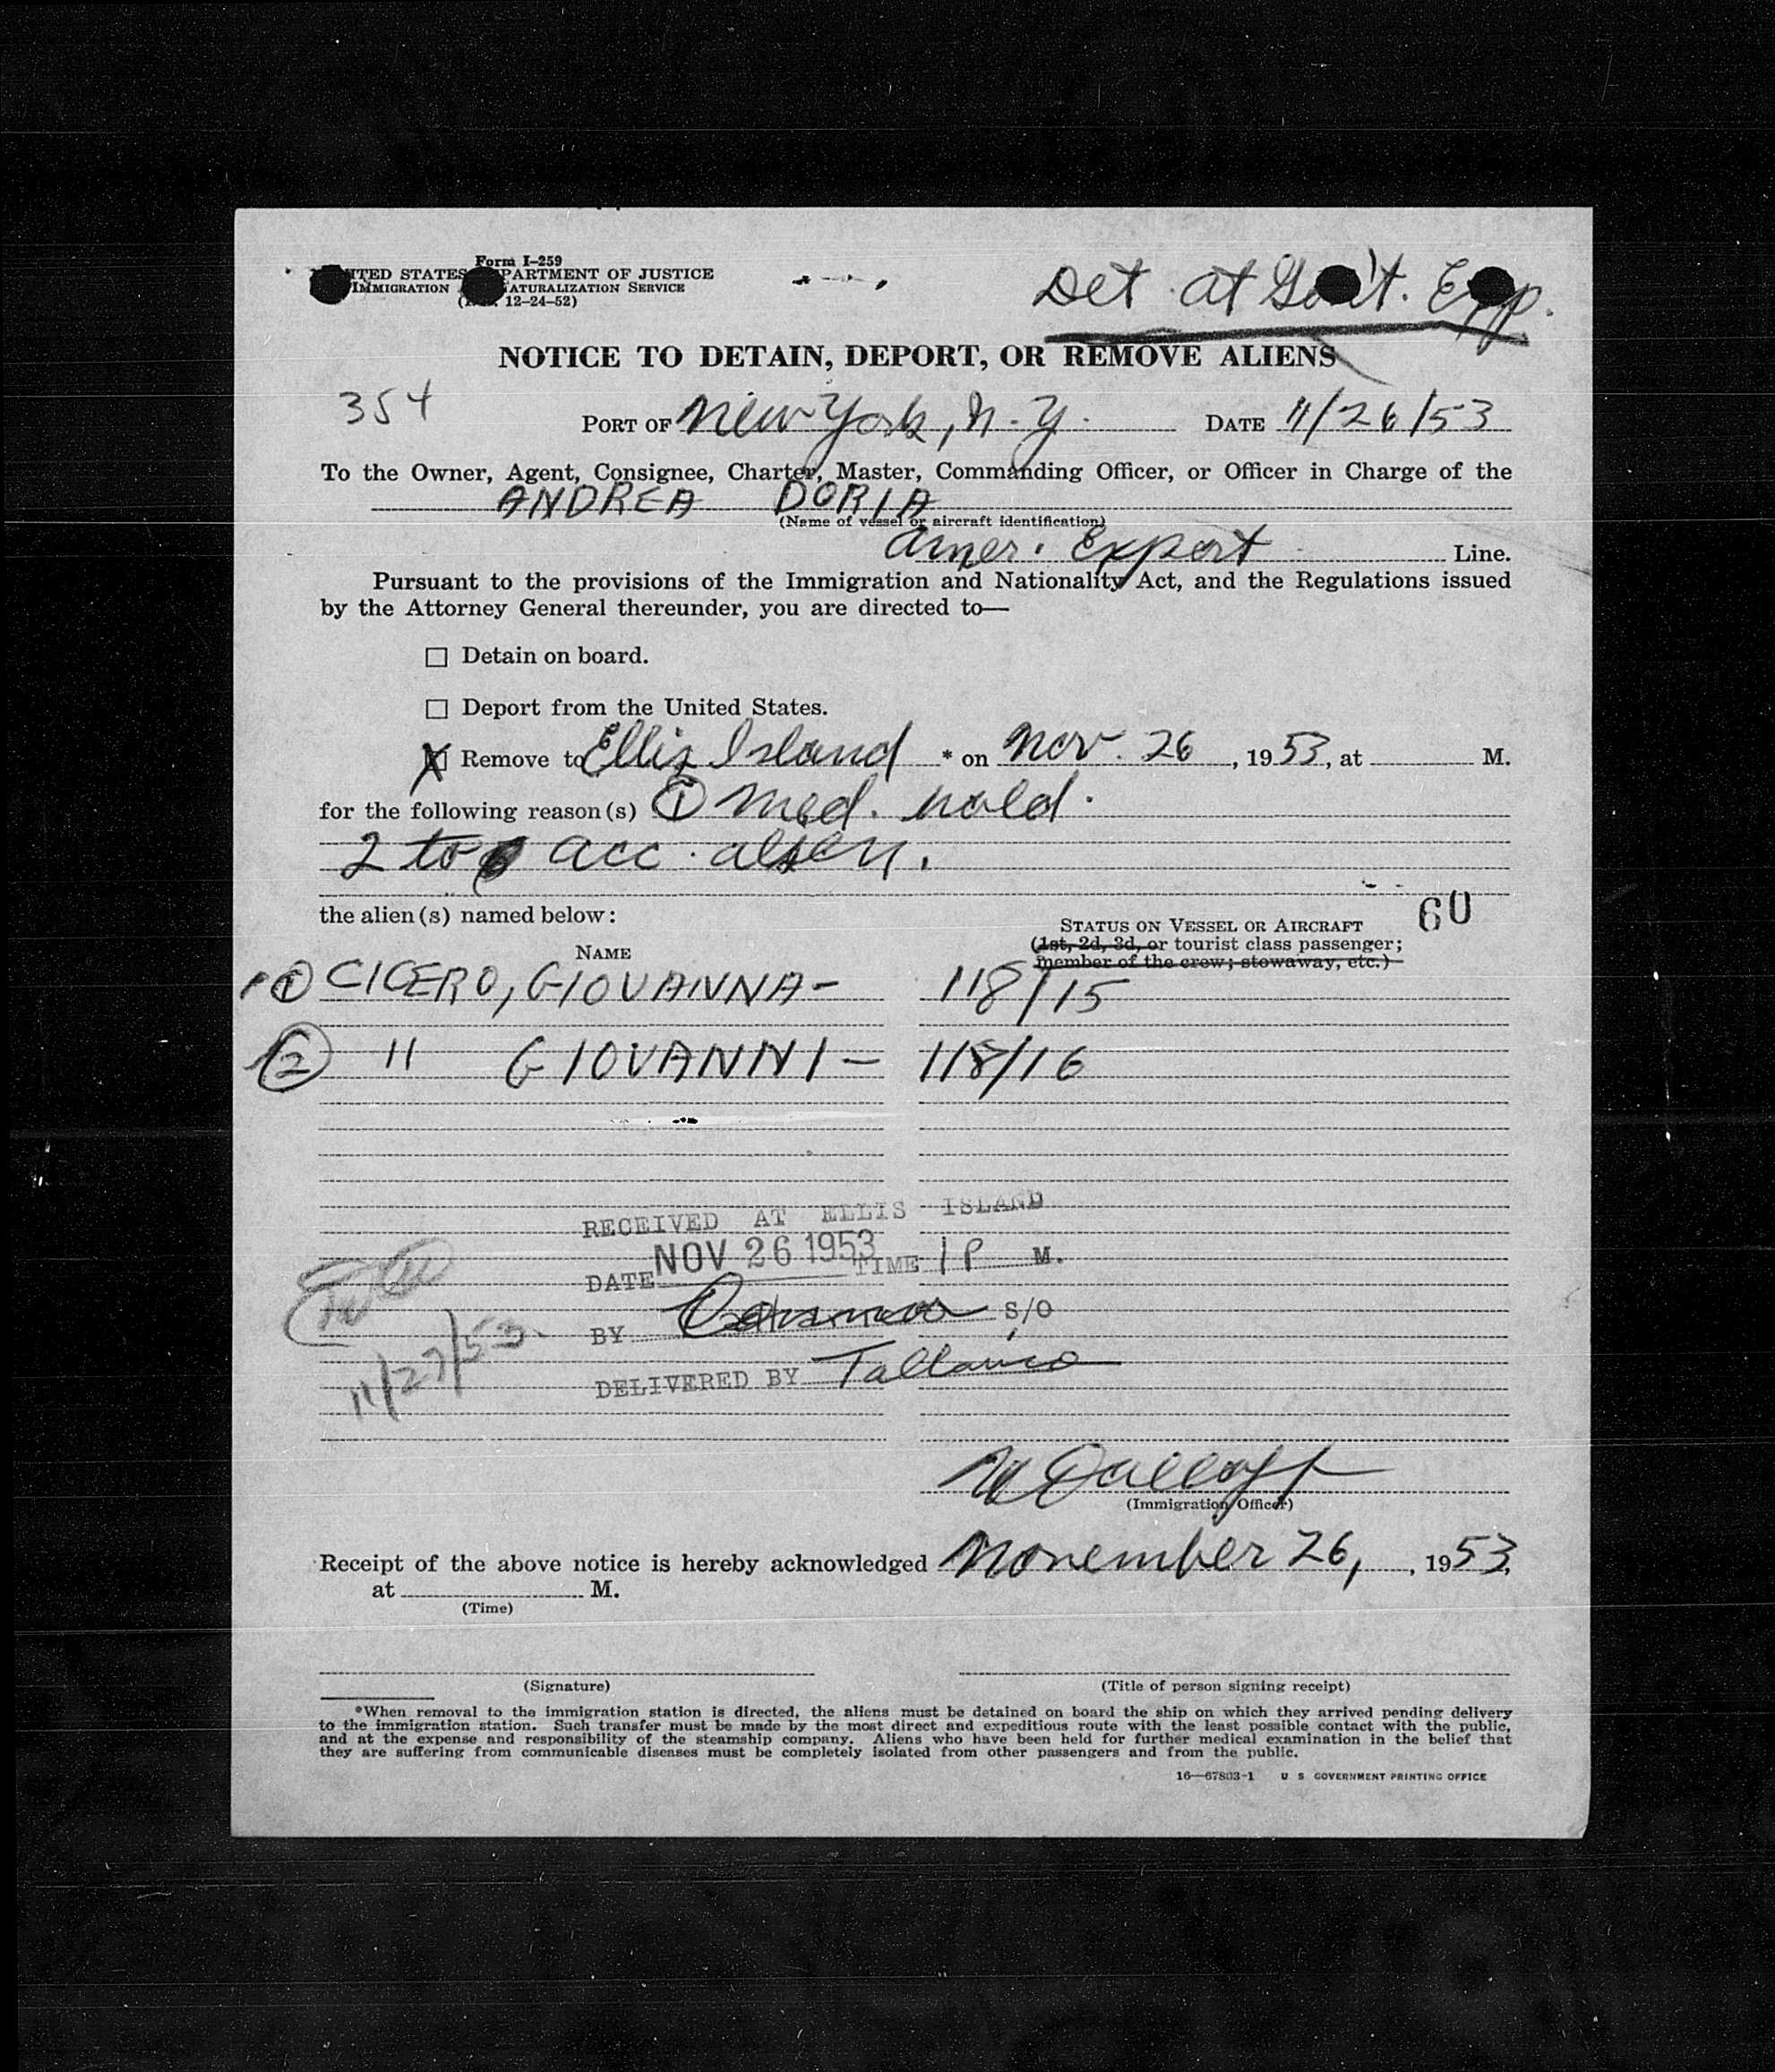 Form I–259
UNITED STATES DEPARTMENT OF JUSTICE
IMMIGRATION NATURALIZATION SERVICE
12–24–52)
Det. at Gov't. Exp.
NOTICE TO DETAIN, DEPORT, OR REMOVE ALIENS
354
PORT OF New York, N.Y. DATE 11/26/53
To the Owner, Agent, Consignee, Charter, Master, Commanding Officer, or Officer in Charge of the
ANDREA DORIA
(Name of vessel or aircraft identification)
Amer. Export Line.
Pursuant to the provisions of the Immigration and Nationality Act, and the Regulations issued
by the Attorney General thereunder, you are directed to—
☐ Detain on board.
☐ Deport from the United States.
☒ Remove to Ellis Island * on Nov. 26, 1953, at M.
for the following reason(s) ① Med. hold.
2 to acc. alien.
the alien(s) named below:
60
STATUS ON VESSEL OR AIRCRAFT
(1st, 2d, 3d, or tourist class passenger;
member of the crew; stowaway, etc.)
NAME
① CICERO, GIOVANNA – 118/15
② " GIOVANNI – 118/16
RECEIVED AT ELLIS ISLAND
DATE NOV 26 1953 TIME 1 P M.
BY S/O
11/27/53
DELIVERED BY
(Immigration Officer)
Receipt of the above notice is hereby acknowledged November 26, , 1953,
at M.
(Time)
(Signature) (Title of person signing receipt)
*When removal to the immigration station is directed, the aliens must be detained on board the ship on which they arrived pending delivery
to the immigration station. Such transfer must be made by the most direct and expeditious route with the least possible contact with the public,
and at the expense and responsibility of the steamship company. Aliens who have been held for further medical examination in the belief that
they are suffering from communicable diseases must be completely isolated from other passengers and from the public.
16—67803-1 U S GOVERNMENT PRINTING OFFICE